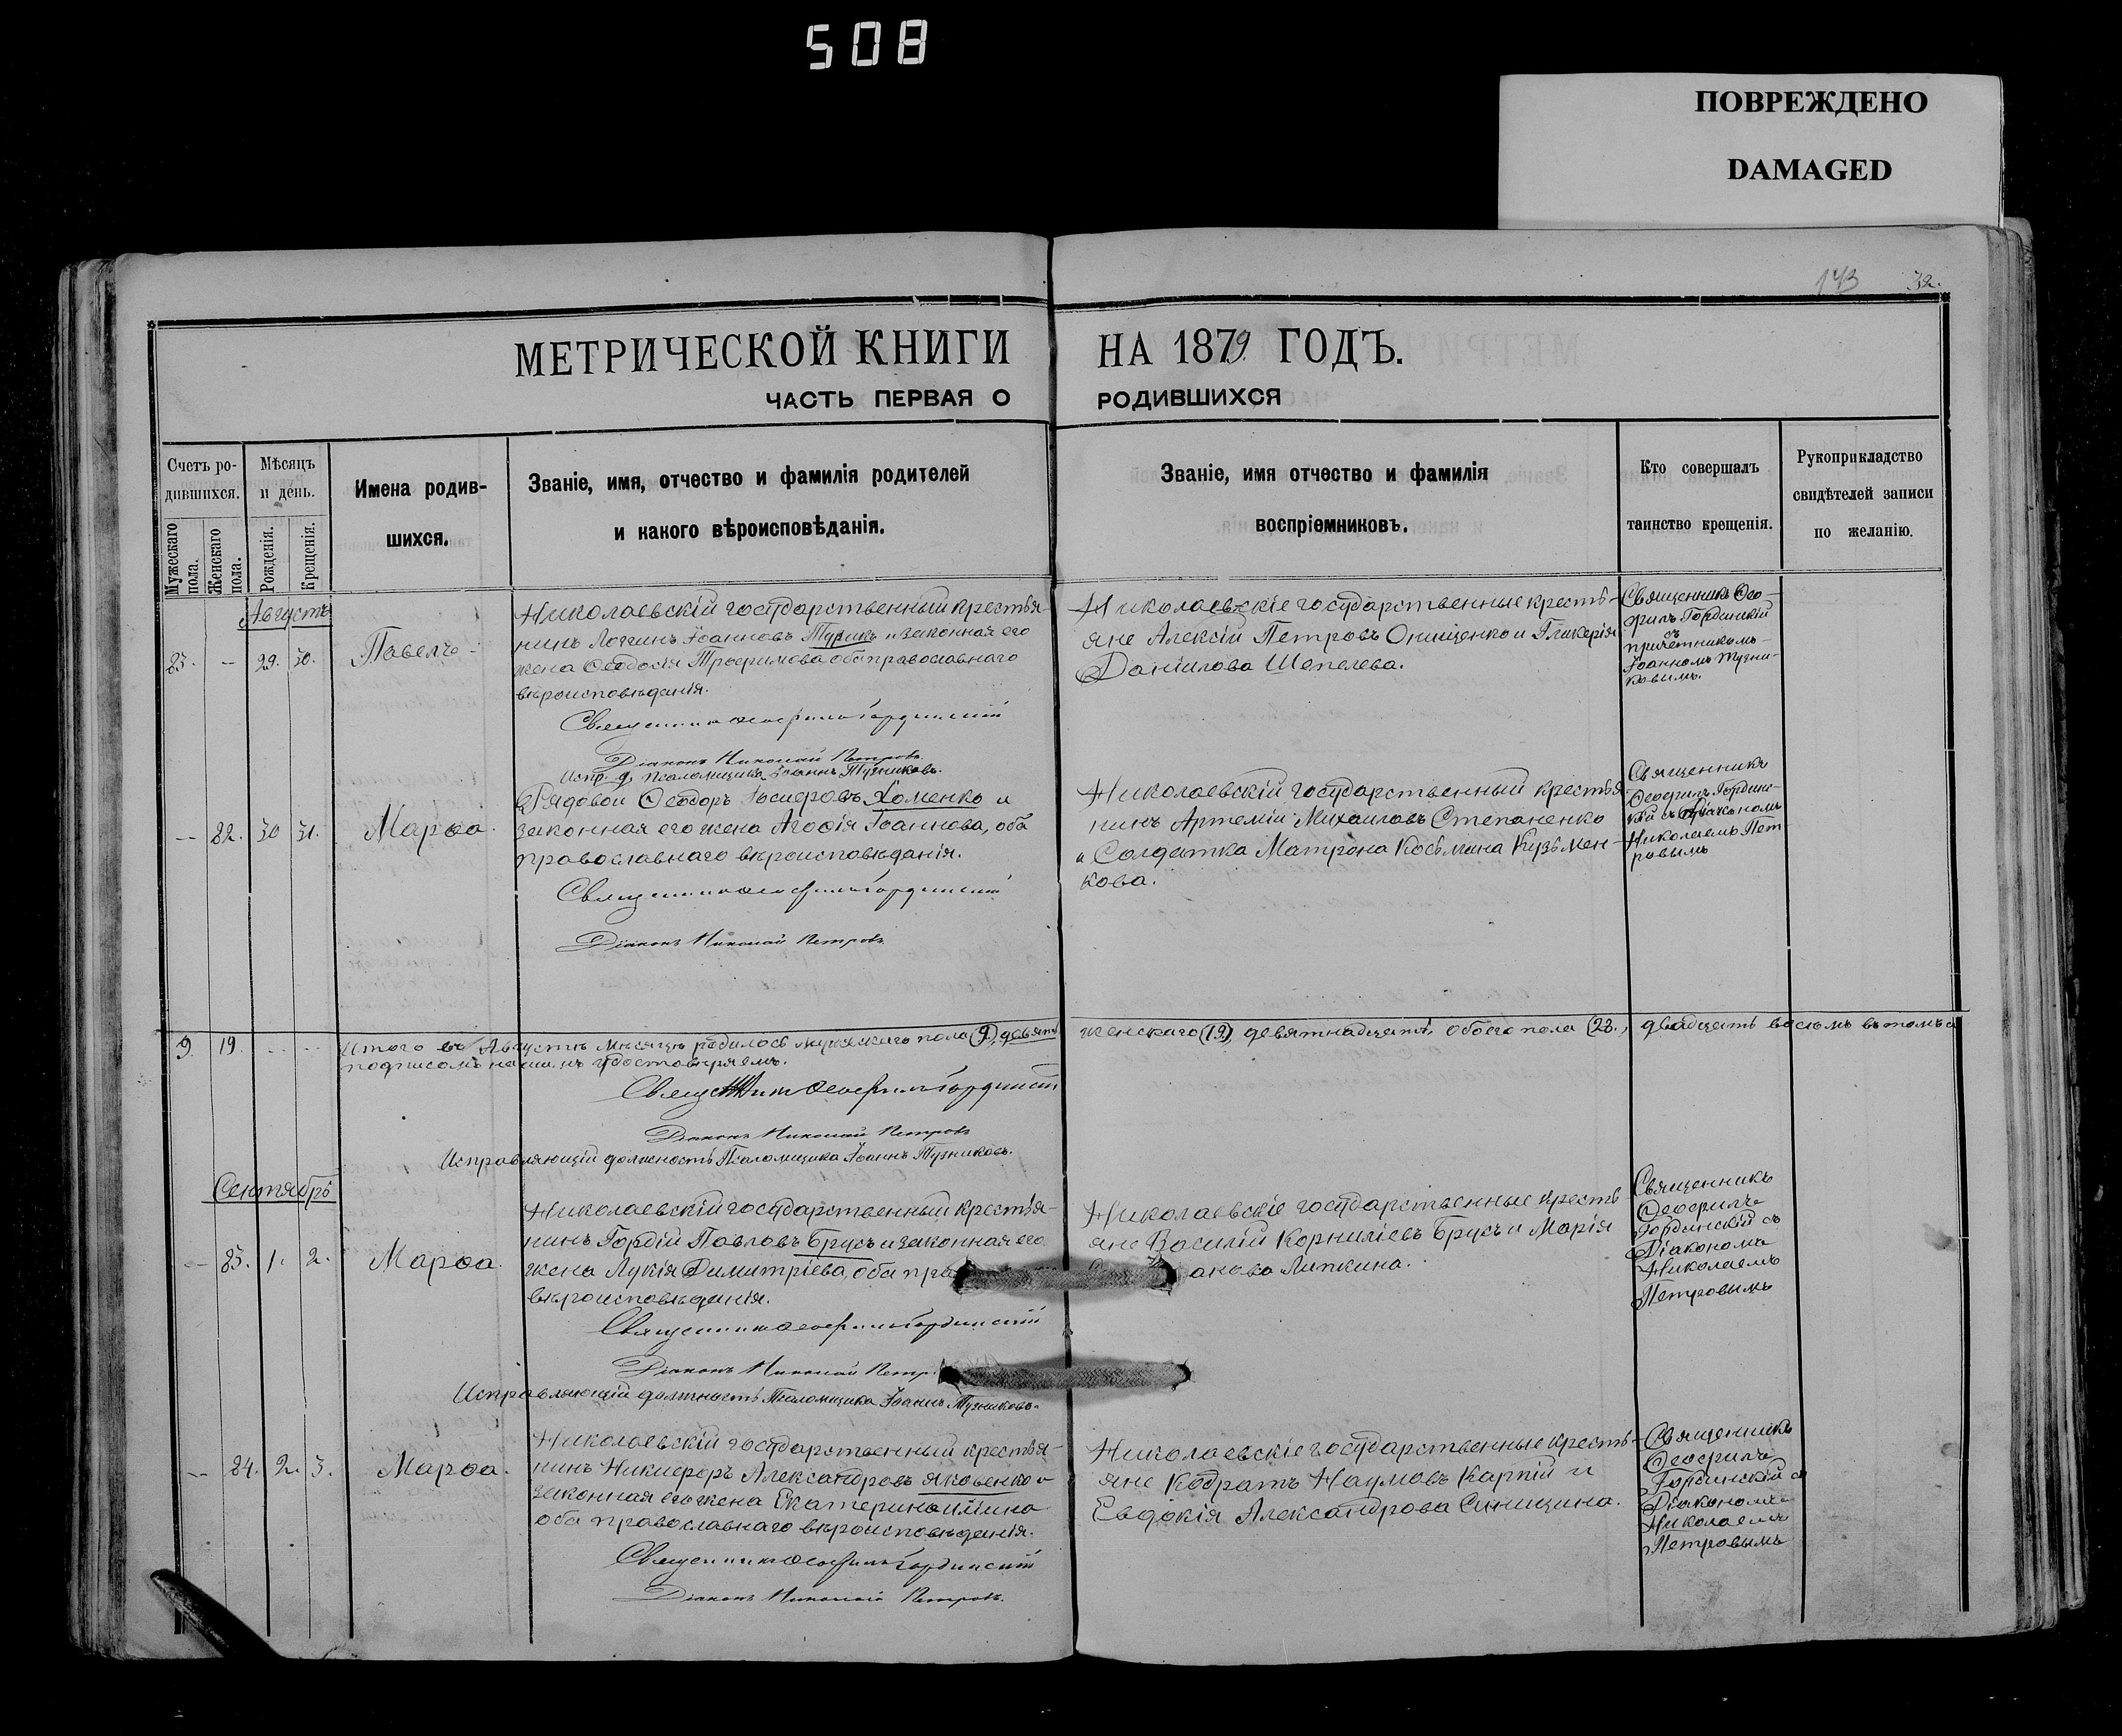 508
ПОВРЕЖДЕНО
DAMAGED
143 32.
МЕТРИЧЕСКОЙ КНИГИ НА 1879. ГОДЪ.
ЧАСТЬ ПЕРВАЯ О РОДИВШИХСЯ
Счетъ ро-
дившихся.
Мужескаго пола.
Женскаго пола.
Мѣсяцъ
и день.
Рожденія.
Крещенія.
Имена родив-
шихся.
Званіе, имя, отчество и фамилія родителей
и какого вѣроисповѣданія.
Званіе, имя отчество и фамилія
воспріемниковъ.
Кто совершалъ
таинство крещенія.
Рукоприкладство
свидѣтелей записи
по желанію.
Августъ
23. – 29. 30. Павелъ
Николаевскій государственный крестья-
нинъ Логгинъ Іоанновъ Турикъ и законная его
жена Ѳеодосія Трофимова оба православнаго
вѣроисповѣданія.
Священникъ Ѳеофилъ Гординскій
Діаконъ Николай Петровъ
Испр. д. Псаломщика Іоаннъ Тузниковъ.
Николаевскіе государственные кресть-
яне Алексій Петровъ Онищенко и Гликерія
Даніилова Шепелева.
Священникъ Ѳео-
филъ Гординскій
съ
причетникомъ
Іоанномъ Тузни-
ковымъ.
– 82. 30 31. Марѳа.
Рядовой Ѳеодоръ Іосифовъ Хоменко и
законная его жена Агафія Іоаннова, оба
православнаго вѣроисповѣданія.
Священникъ Ѳеофилъ Гординскій
Діаконъ Николай Петровъ
Николаевскій государственный крестья
нинъ Артемій Михаиловъ Степаненко
и Солдатка Матрона Косьмина Кузьмен-
кова.
Священникъ
Ѳеофилъ Гординс-
кій съ Діакономъ
Николаемъ Пет
ровымъ
9. 19. Итого въ Августѣ мѣсяцѣ родилось мужескаго пола (9), девять женскаго (19), девятнадцать, обоего пола (28), двадцать восемь въ томъ и
подписомъ нашимъ удостовѣряемъ.
Священникъ Ѳеофилъ Гординскій
Діаконъ Николай Петровъ
Исправляющій должность Псаломщика Іоаннъ Тузниковъ.
Сентябрь
– 83. 1. 2. Марѳа.
Николаевскій государственный крестья-
нинъ Гордій Павловъ Брусъ и законная его
жена Лукія Димитріева, оба пра
вѣроисповѣданія.
Священникъ Ѳеофилъ Гординскій
Діаконъ Николай Петр
Исправляющій должность Псаломщика Іоаннъ Тузниковъ.
Николаевскіе государственные кресть
яне Василій Корниліевъ Брусъ и Марія
анова Липкина.
Священникъ
Ѳеофилъ
Гординскій съ
Діакономъ
Николаемъ
Петровымъ
– 84. 2. 3. Марѳа.
Николаевскій государственный крестья-
нинъ Никифоръ Александровъ Яковенко и
законная его жена Екатерина Иліина
оба православнаго вѣроисповѣданія.
Священникъ Ѳеофилъ Гординскій
Діаконъ Николай Петровъ.
Николаевскіе государственные кресть-
яне Кодратъ Наумовъ Карпій и
Евдокія Александрова Синицина.
Священникъ
Ѳеофилъ
Гординскій съ
Діакономъ
Николаемъ
Петровымъ